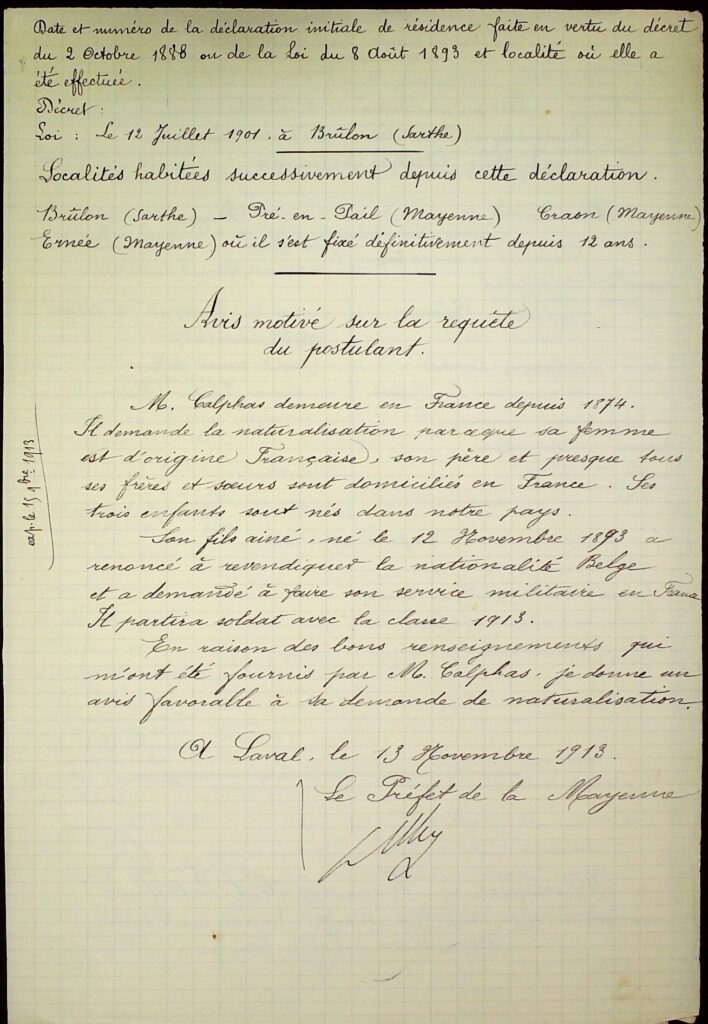 Date et numéro de la déclaration initiale de résidence faite en vertu du décret
du 2 Octobre 1888 ou de la Loi du 8 Août 1893 et localité où elle a
été effectuée.
Décret :
Loi : Le 12 Juillet 1901. à Brûlon (Sarthe)
Localités habitées successivement depuis cette déclaration.
Brûlon (Sarthe) — Pré-en-Pail (Mayenne) Craon (Mayenne)
Ernée (Mayenne) où il s'est fixé définitivement depuis 12 ans.
Avis motivé sur la requête
du postulant.
M. Calphas demeure en France depuis 1874.
Il demande la naturalisation parceque sa femme
est d'origine Française, son père et presque tous
ses frères et sœurs sont domiciliés en France. Ses
trois enfants sont nés dans notre pays.
Son fils ainé, né le 12 Novembre 1893 a
renoncé à revendiquer la nationalité Belge
et a demandé à faire son service militaire en France
Il partira soldat avec la classe 1913.
En raison des bons renseignements qui
m'ont été fournis par M. Calphas. je donne un
avis favorable à sa demande de naturalisation.
A Laval, le 13 Novembre 1913.
Le Préfet de la Mayenne
exp. le 15 9bre 1913